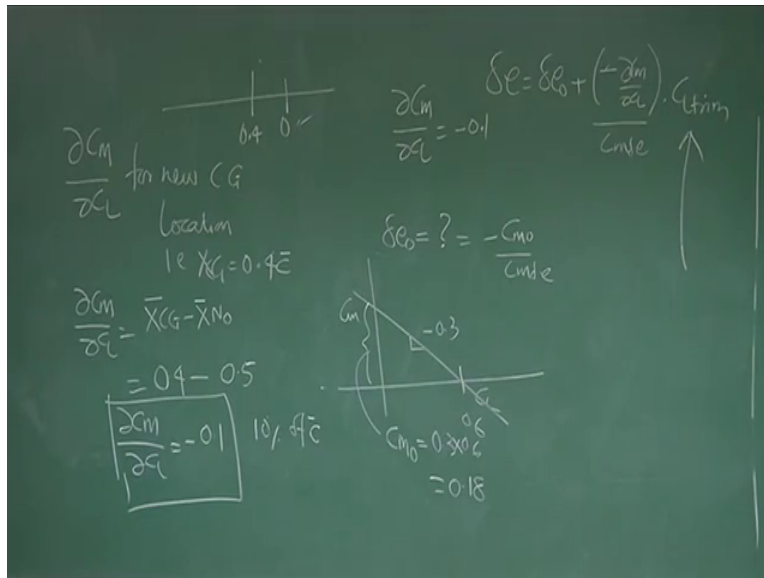 0.4
∂Cm/∂CL for new CG
Location
ie XCG = 0.4c̄
∂Cm/∂CL = X̄CG - X̄N0
= 04 - 0.5
∂Cm/∂CL = -01 10% of c̄
∂Cm/∂CL = -0.1
δe = δe0 + (-∂Cm/∂CL)/Cmδe · CLtrim
δe0 = ? = -Cm0/Cmδe
Cm
-0.3
CL
0.6
Cm0 = 0.3x0.6
= 0.18